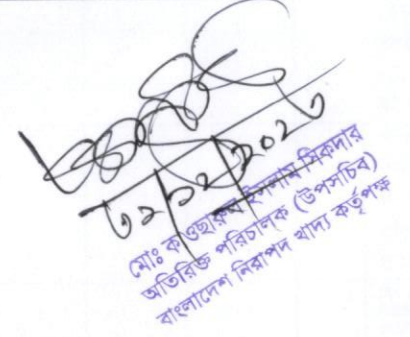 মোঃ কওছারুল ইসলাম সিকদার
অতিরিক্ত পরিচালক (উপসচিব)
বাংলাদেশ নিরাপদ খাদ্য কর্তৃপক্ষ